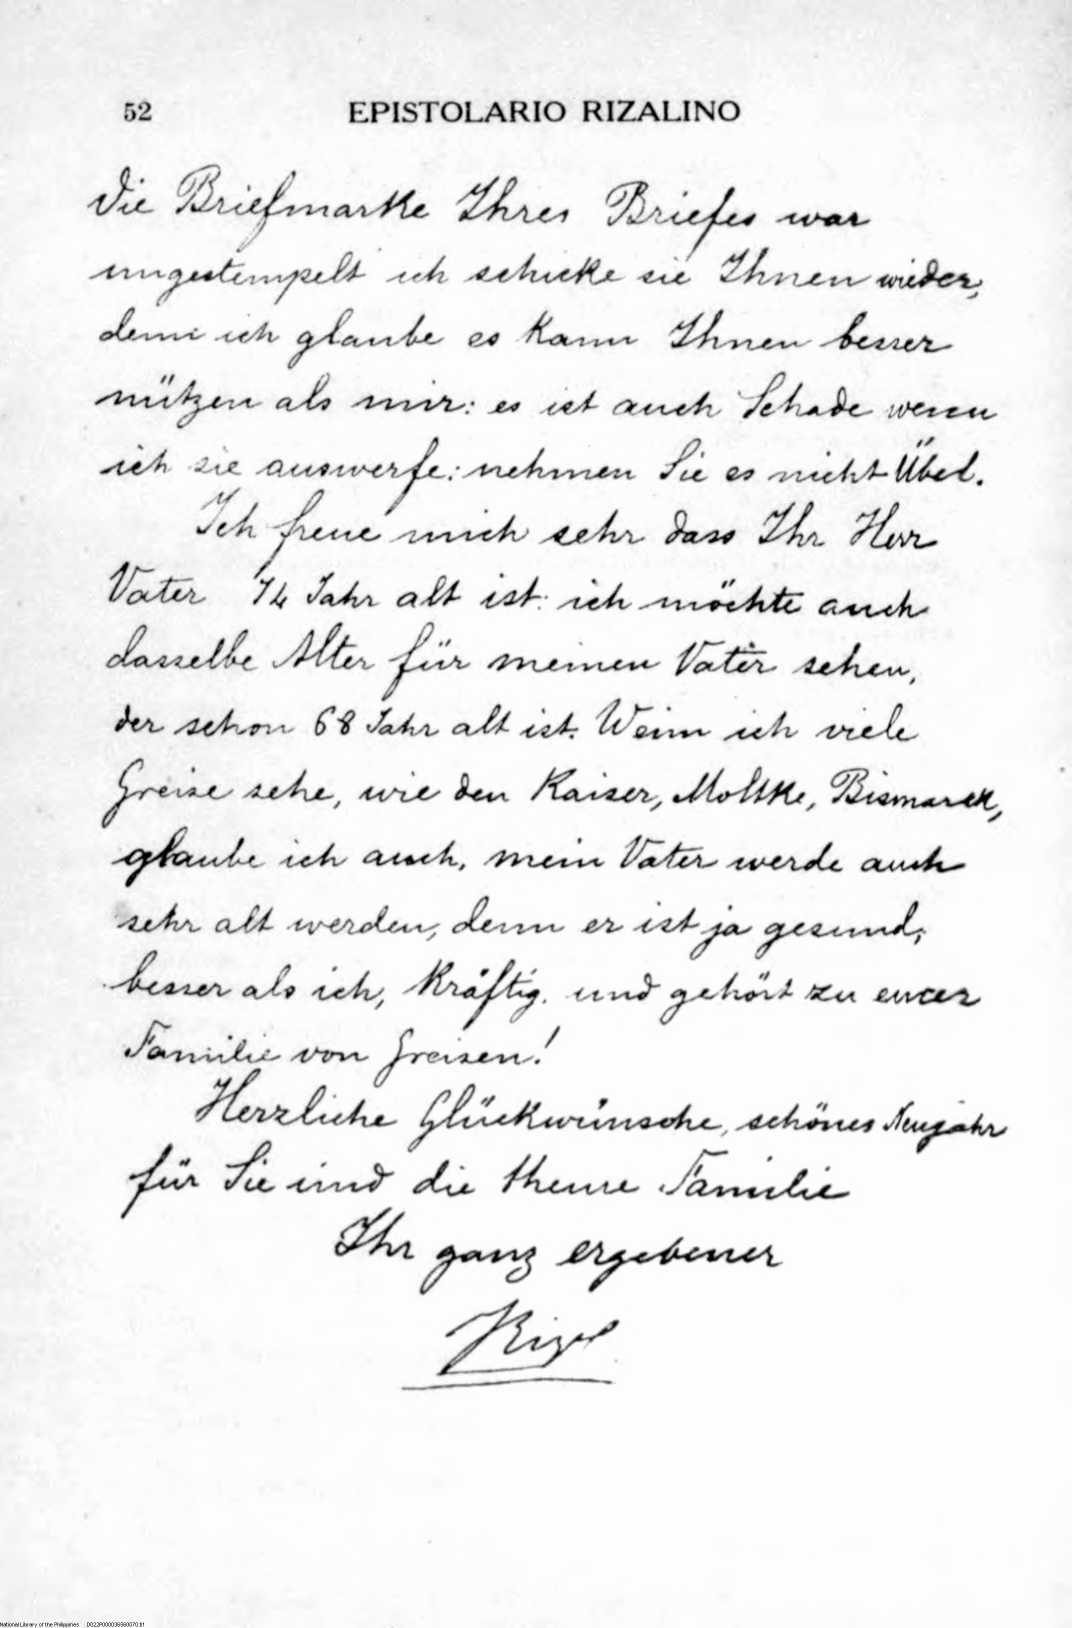 52 EPISTOLARIO RIZALINO
Die Briefmarke Ihres Briefes war
ungestempelt ich schicke sie Ihnen wieder,
denn ich glaube es kann Ihnen besser
nützen als mir: es ist auch Schade wenn
ich sie auswerfe: nehmen Sie es nicht Übel.
Ich freue mich sehr dass Ihr Herr
Vater 74 Jahr alt ist: ich möchte auch
dasselbe Alter für meinen Vater sehen,
der schon 68 Jahr alt ist. Wenn ich viele
Greise sehe, wie den Kaiser, Moltke, Bismarck,
glaube ich auch, mein Vater werde auch
sehr alt werden, denn er ist ja gesund,
besser als ich, kräftig, und gehört zu
Familie von Greisen!
Herzliche Glückwünsche, schönes Neujahr
für Sie und die theure Familie
Ihr ganz ergebener
Rizal
National Library of the Philippines